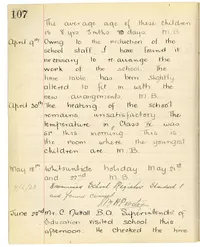 107
The average age of these children
is 8 yrs 3 mths 10 days. M.B.
April 9th Owing to the reduction of the
school staff I have found it
necessary to re arrange the
work of the school. The
time table has been slightly
altered to fit in with the
new arrangements M.B.
April 30th The heating of the school
remains unsatisfactory. The
temperature in Class
this morning. This is
the room where the youngest
children are. M.B.
May 18th Whitsuntide holiday May 21st
and 22nd M.B.
Examined School Registers
and found correct
June 20th Mr. C. B.A. Superintendent of
Education visited school this
afternoon. He checked the time